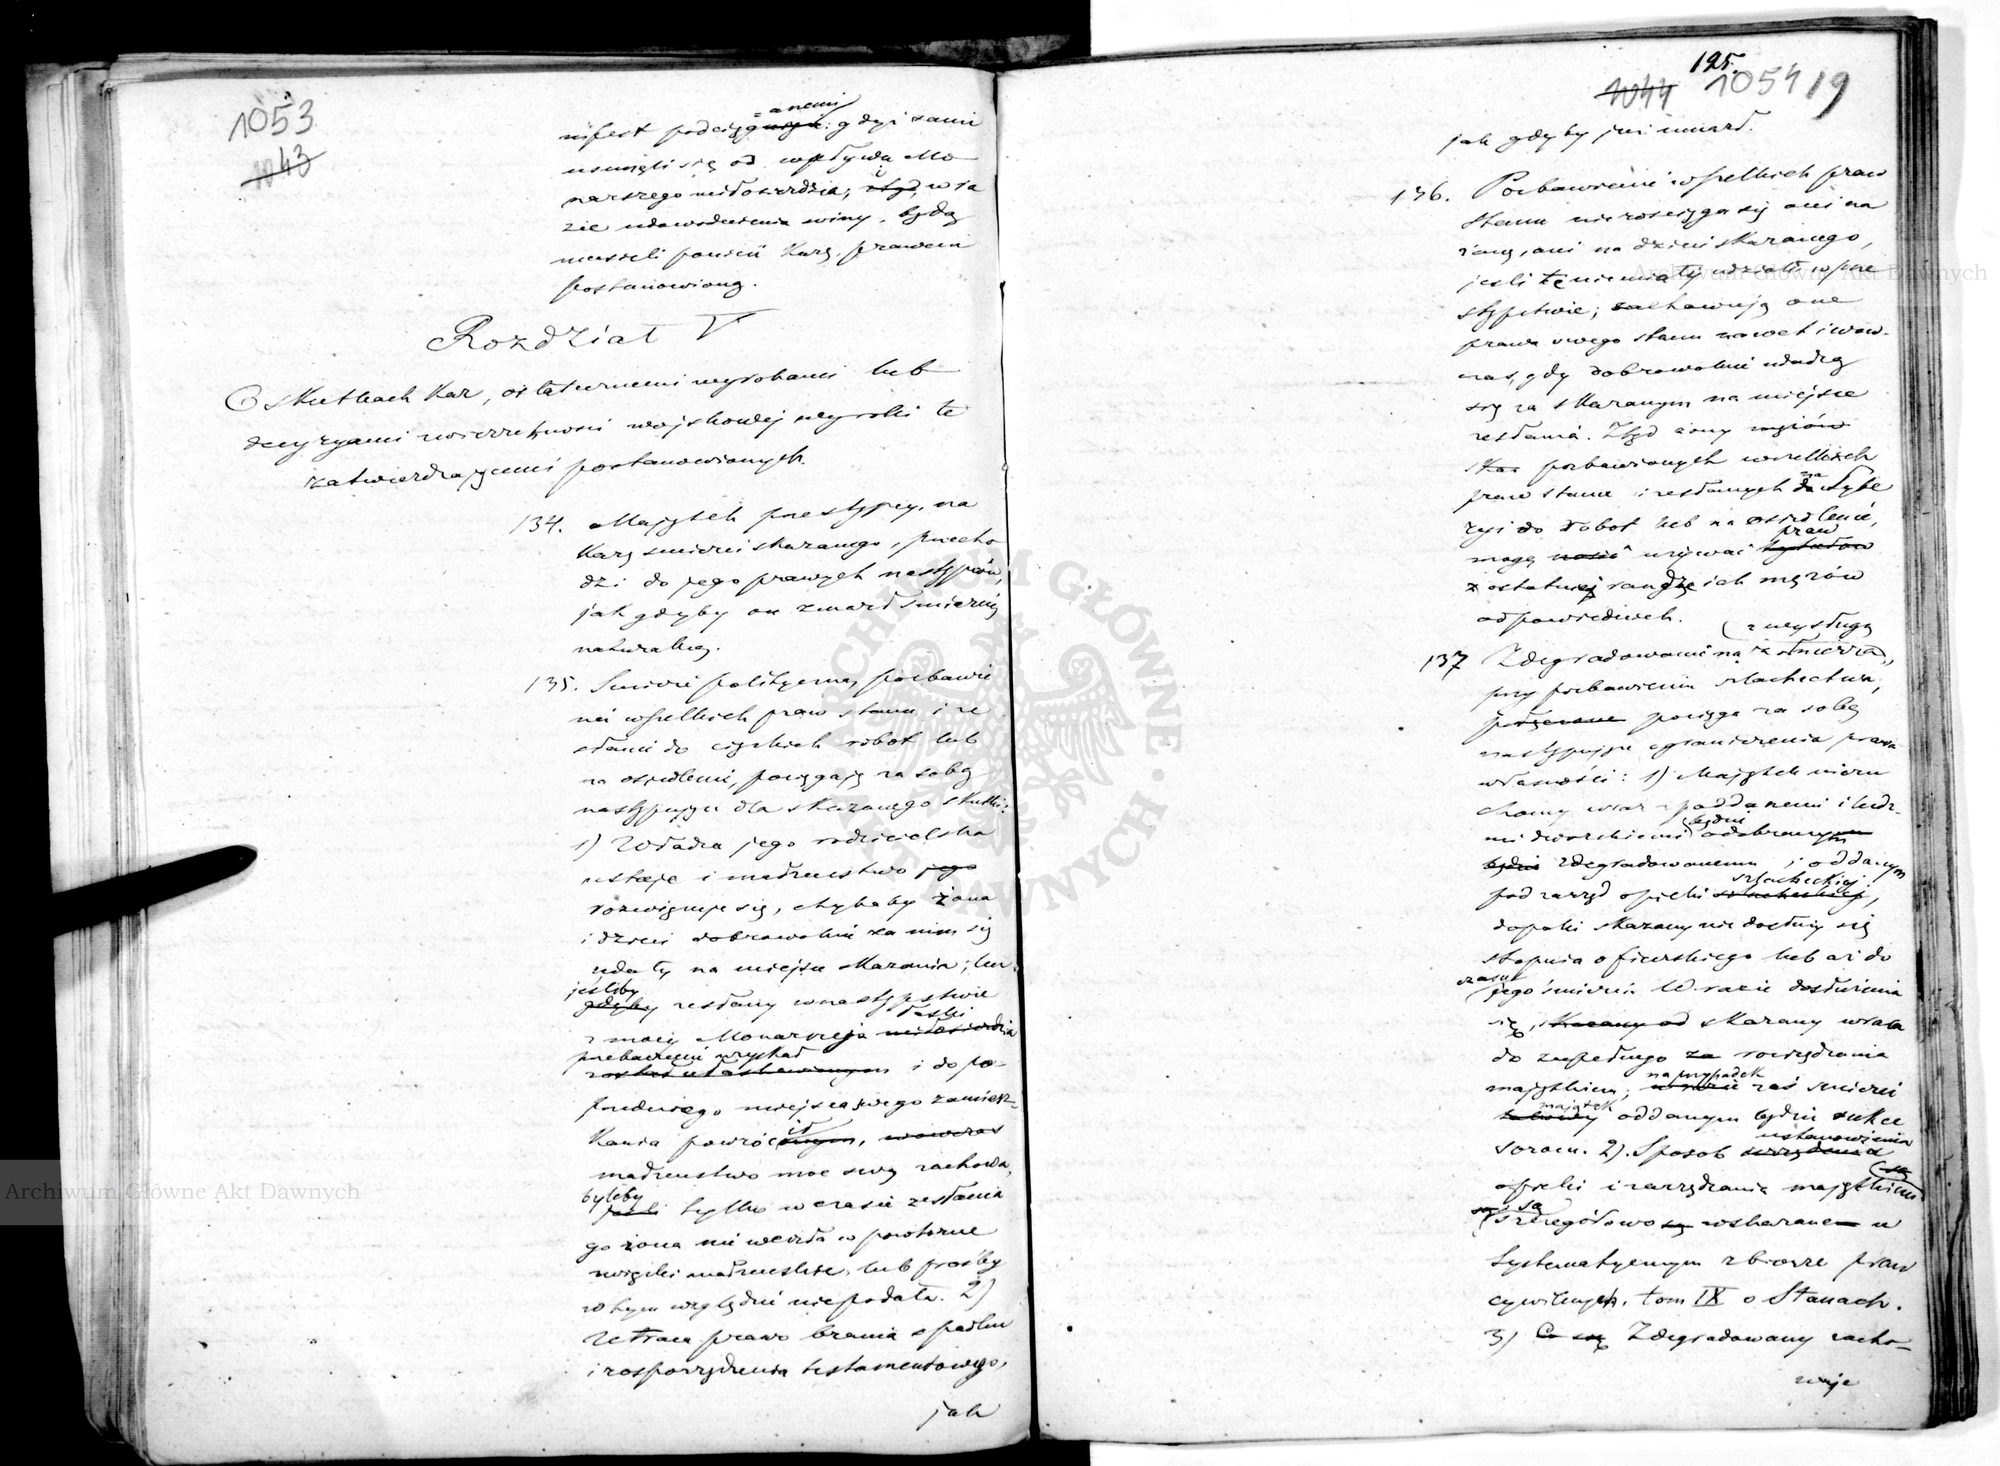 1053
1043
anemi
nifest podciągnięci: gdyż sami
usunęli się od wpływu Mo
narszego miłosierdzia; i w ra
zie udowodnienia winy, będą
musieli ponieść karę, prawem
postanowioną.
Rozdział V
O skutkach kar, ostatecznemi wyrokami lub
decyzyami zwierzchności wojskowej wyroki te
zatwierdzającemi postanowionych.
134. Majątek przestępcy, na
karę śmierci skazanego, przecho
dzi do jego prawych następców,
jak gdyby on zmarł śmiercią
naturalną.
135. Śmierć polityczna, pozbawie
nie wszelkich praw stanu i ze
słanie do ciężkich robot lub
na osiedlenie, pociągają za sobą
następujące dla skazanego skutki:
1) Władza jego rodzicielska
ustaje i małżeństwo jego
rozwiązuje się, chybaby żona
i dzieci dobrowolnie za nim się
udały na miejsce skazania; lecz
jeśliby
gdyby zesłany w następstwie
łaski
z mocy Monarszeja miłosierdzia
przebaczenie uzyskał
został ułaskawionym i do po-
przedniego miejsca swego zamiesz-
kania powrócił, wówczas
małżeństwo moc swą zachowa,
byleby
jeśli tylko w czasie zesłania
go żona nie weszła w powtórne
związki małżeńskie, lub prośby
w tym względzie nie podała. 2)
Utraca prawo brania spadku
i rozporządzenia testamentowego,
jak
125.
1044 1054 19
jak gdyby już umarł.
136. Pozbawienie wszelkich praw
stanu nierozciąga się ani na
żonę, ani na dzieci skazanego,
jeśli te niemiały udziału w prze
stępstwie; zachowują one
prawa swego stanu nawet i wów-
czas, gdy dobrowolnie udadzą
się za skazanym na miejsce
zesłania. Ztąd żony mężów
skaz pozbawionych wszelkich
na
praw stanu i zesłanych do Sybe
ryi do robot lub na osiedlenie,
praw
mogą nosić używać tytułów
z ostatniej rangze ich mężów
odpowiednich.
z wysługą
137 Zdegradowanie na żołnierza,
przy pozbawieniu szlachectwa,
połączone pociąga za sobą
następujące ograniczenia prawa
własności: 1) Majątek nieru
chomy wraz z poddanemi i ludź-
będzie
mi dworskiemi odebranym
będzie zdegradowanemu i oddanym
szlacheckiej
pod zarząd opieki szlacheckiej,
dopóki skazany nie dosłuży się
stopnia oficerskiego lub aż do
czasu
jego śmierci. W razie dosłużenia
się, skazany od skazany wraca
do zupełnego za rozrządzania
na przypadek
majątkiem; w razie zaś śmierci
majątek
oddanym będzie sukce
sorom. 2). Sposób
ustanowienia
urządzenia
opieki i zarządzania majątkiem
są
szczegółowo są wskazane w
Systematycznym zbiorze praw
cywilnych, tom IX o Stanach.
3) Co się Zdegradowany zacho-
wuje
Archiwum Główne Akt Dawnych
Archiwum Główne Akt Dawnych
ARCHIWUM GŁÓWNE AKT DAWNYCH